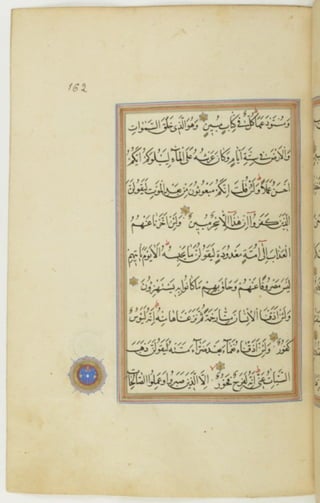 162
وَمُسْتَوْدَعَهَا كُلٌّ فِي كِتَابٍ مُبِينٍ وَهُوَ الَّذِي خَلَقَ السَّمٰوَاتِ
وَالْاَرْضَ فِي سِتَّةِ اَيَّامٍ وَكَانَ عَرْشُهُ عَلَى الْمَاءِ لِيَبْلُوَكُمْ اَيُّكُمْ
اَحْسَنُ عَمَلًا وَلَئِنْ قُلْتَ اِنَّكُمْ مَبْعُوثُونَ مِنْ بَعْدِ الْمَوْتِ لَيَقُولَنَّ
الَّذِينَ كَفَرُوا اِنْ هٰذَا اِلَّا سِحْرٌ مُبِينٌ وَلَئِنْ اَخَّرْنَا عَنْهُمُ
الْعَذَابَ اِلٰى اُمَّةٍ مَعْدُودَةٍ لَيَقُولُنَّ مَا يَحْبِسُهُ اَلَا يَوْمَ يَاْتِيهِمْ
لَيْسَ مَصْرُوفًا عَنْهُمْ وَحَاقَ بِهِمْ مَا كَانُوا بِهِ يَسْتَهْزِؤُنَ
وَلَئِنْ اَذَقْنَا الْاِنْسَانَ مِنَّا رَحْمَةً ثُمَّ نَزَعْنَاهَا مِنْهُ اِنَّهُ لَيَؤُسٌ
كَفُورٌ وَلَئِنْ اَذَقْنَاهُ نَعْمَاءَ بَعْدَ ضَرَّاءَ مَسَّتْهُ لَيَقُولَنَّ ذَهَبَ
السَّيِّئَاتُ عَنِّي اِنَّهُ لَفَرِحٌ فَخُورٌ اِلَّا الَّذِينَ صَبَرُوا وَعَمِلُوا الصَّالِحَاتِ